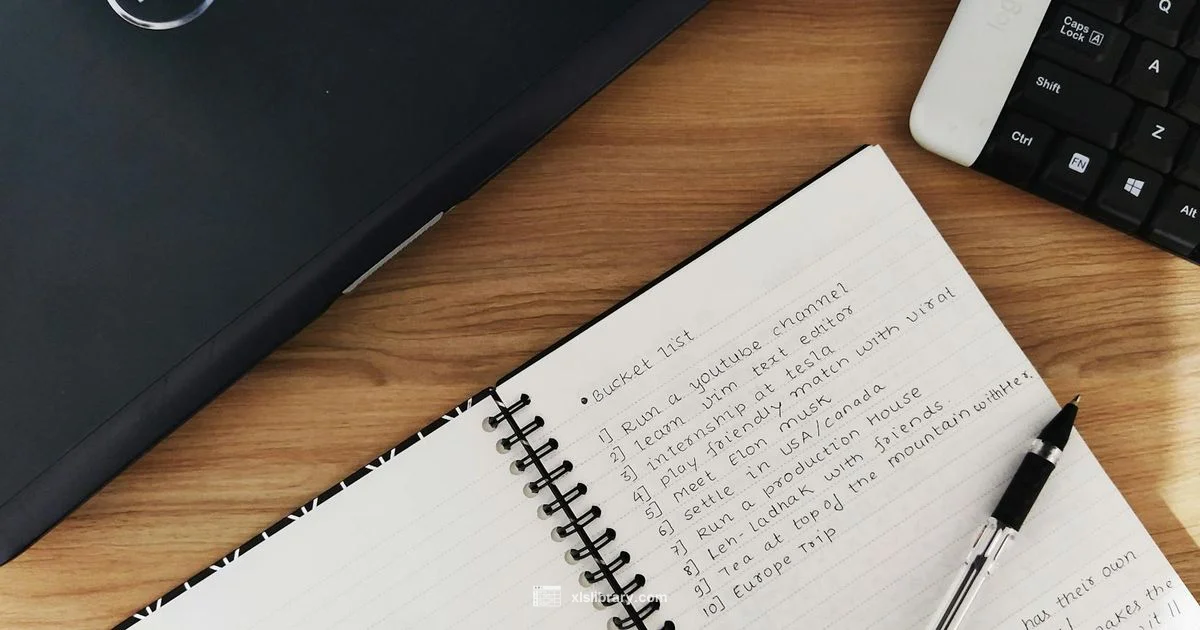 • Bucket list
1] Run a youtube channel
2] learn vim text editor
3] internship at tesla
4] play friendly match with virat
5] Meet Elon musk
6] settle in USA/canada
7] Run a production House
8] Leh-Ladhak with friends.
9] Tea at top of the mountain with Her.
10] Europe Trip
has their own
makes the
it'll
Q
Caps Lock A
A
Shift
Z
Ctrl
FN
Alt
xlslibrary.com